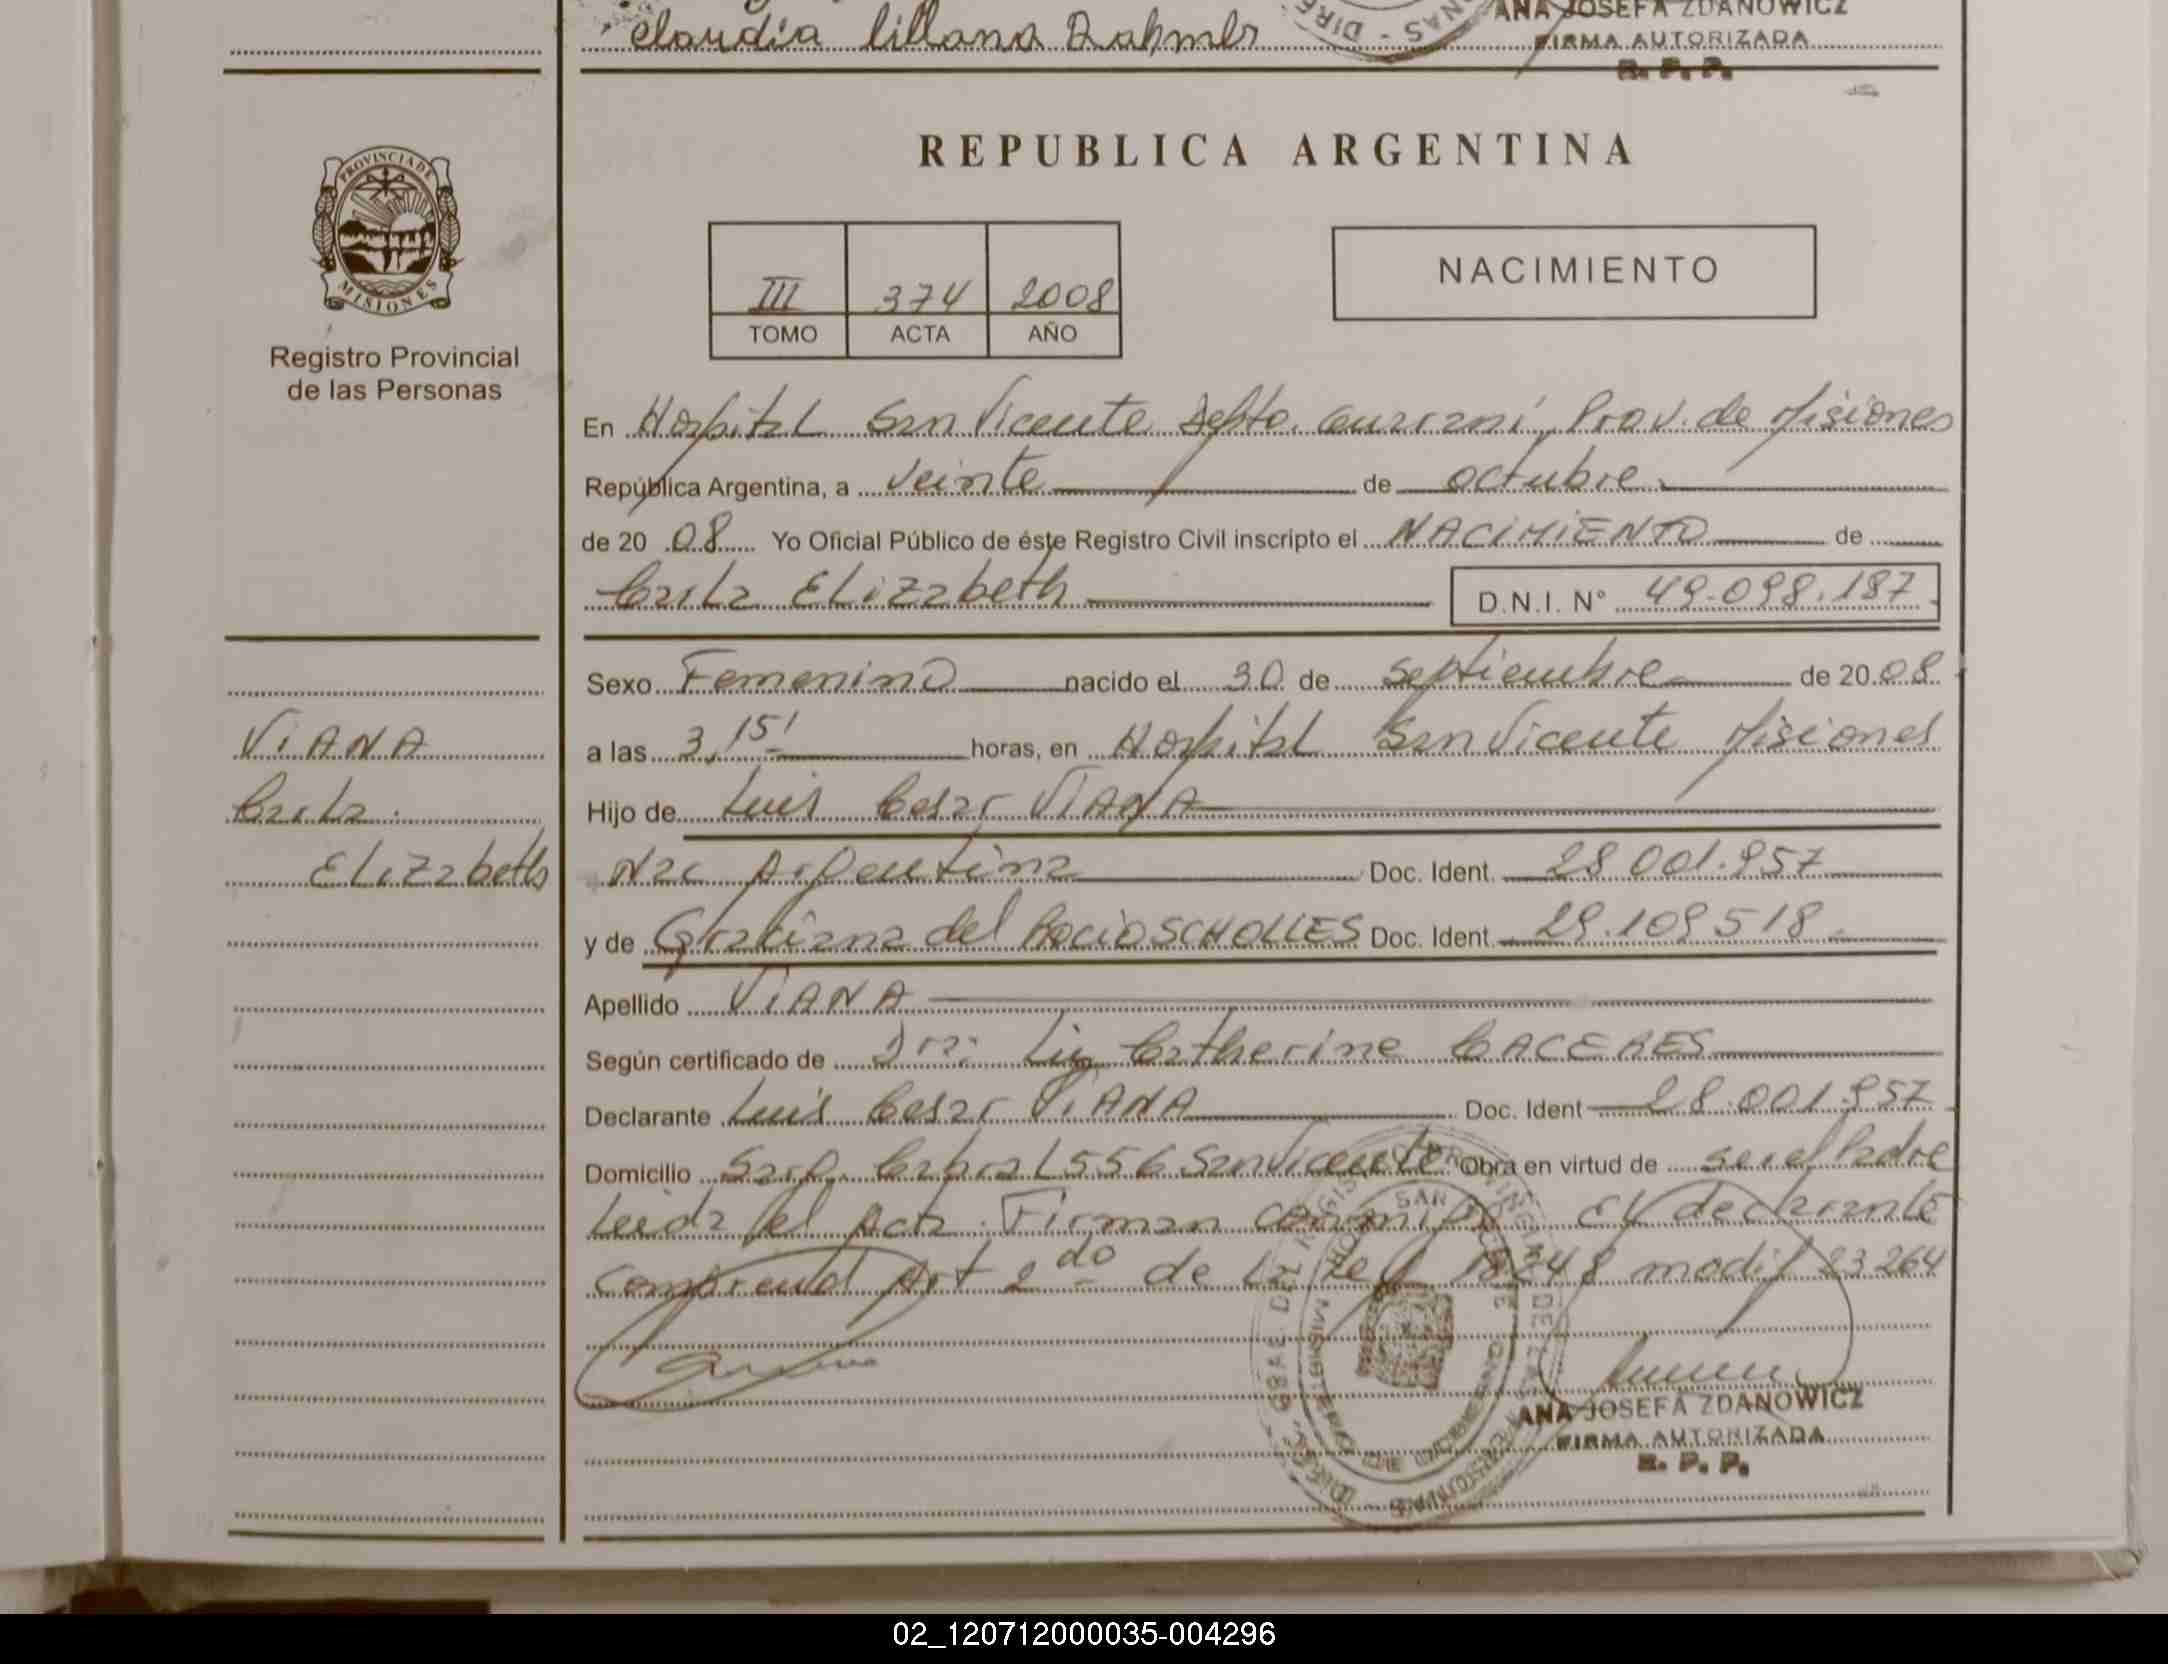 Claudia Liliana Dahmer
ANA JOSEFA ZDANOWICZ
FIRMA AUTORIZADA
R. P. P.
PROVINCIA DE
MISIONES
Registro Provincial
de las Personas
REPUBLICA ARGENTINA
III 374 2008
TOMO ACTA AÑO
NACIMIENTO
En Hospital San Vicente Depto. Guaraní, Prov. de Misiones
República Argentina, a veinte de octubre
de 2008 Yo Oficial Público de éste Registro Civil inscripto el NACIMIENTO de
Carla Elizabeth D.N.I. N° 49.098.187
Sexo Femenino nacido el 30 de septiembre de 2008
a las 3,15' horas, en Hospital San Vicente Misiones
Hijo de Luis Cesar VIANA
Nac Argentina Doc. Ident. 28 001.957
y de Graciana del Rocio SCHOLLES Doc. Ident. 29.109518
Apellido VIANA
Según certificado de Dra: Catherine CACERES
Declarante Luis Cesar VIANA Doc. Ident 28.001.957
Domicilio Sarg. Cabral 556 San Vicente Obra en virtud de ser el Padre
Leida el Acta. Firman conmigo El declarante
Comprend Art 2do de la ley 18248 modif 23264
ANA JOSEFA ZDANOWICZ
FIRMA AUTORIZADA
R. P. P.
VIANA
Carla
Elizabeth
02_120712000035-004296